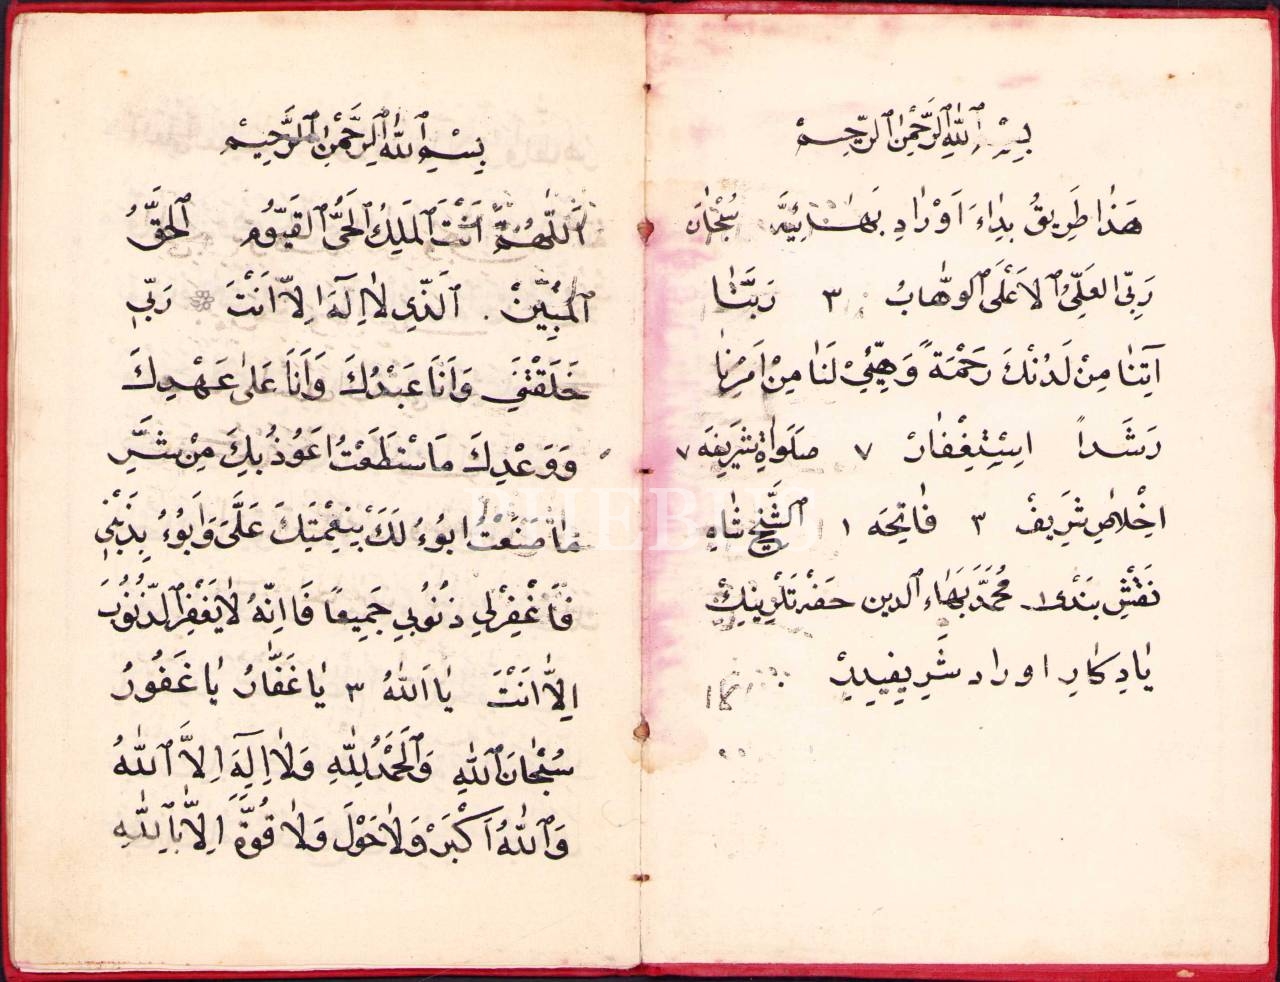 بِسْمِ ٱللّٰهِ ٱلرَّحْمٰنِ ٱلرَّحِيمْ
هَذَا طَرِيقُ بِدَاءَ اَوْرَادِ بَهَائِيَّه سُبْحَانَ
رَبِّيَ العَلِيُّ ٱلاَعْلَى ٱلوَهَّابُ ٣ رَبَّنَا
آتِنَا مِنْ لَدُنْكَ رَحْمَةً وَهَيِّئْ لَنَا مِنْ اَمْرِنَا
رَشَداً اِسْتِغْفَارْ ٧ صَلَوَاةِ شَرِيفَه ٧
اِخْلَاصِ شَرِيفْ ٣ فَاتِحَه ١ ٱلشَّيْخ شَاهِ
نَقْشِبَنْدى مُحَمَّدْ بَهَاءِ ٱلدين حَضْرَتْلَرِينِكْ
يَادِكَارِ اوراد شَرِيفِيدِرْ
بِسْمِ ٱللّٰهِ ٱلرَّحْمٰنِ ٱلرَّحِيمْ
اَللّٰهُمَّ اَنْتَ ٱلمَلِكُ ٱلحَىُّ ٱلقَيُّومُ ٱلحَقُّ
ٱلمُبِينْ . ٱلَّذِي لاَ اِلَهَ اِلاَّ اَنْتَ رَبِّي
خَلَقْتَنِي وَاَنَا عَبْدُكَ وَاَنَا عَلَى عَهْدِكَ
وَوَعْدِكَ مَاسْتَطَعْتُ اَعُوذُ بِكَ مِنْ شَرِّ
مَا صَنَعْتُ اَبُوءُ لَكَ بِنِعْمَتِكَ عَلَىَّ وَاَبُوءُ بِذَنْبِي
فَاغْفِرْلِي ذُنُوبِي جَمِيعًا فَاِنَّهُ لاَيَغْفِرُ ٱلذُّنُوبَ
اِلاَّ اَنْتَ يَا اَللّٰهُ ٣ يَا غَفَّارُ يَا غَفُورُ
سُبْحَانَ ٱللّٰهِ وَٱلحَمْدُ لِلّٰهِ وَلاَ اِلَهَ اِلاَّ ٱللّٰهُ
وَٱللّٰهُ اَكْبَرْ وَلاَحَوْلَ وَلاَ قُوَّةَ اِلاَّ بِاللّٰهِ
PHEBUS